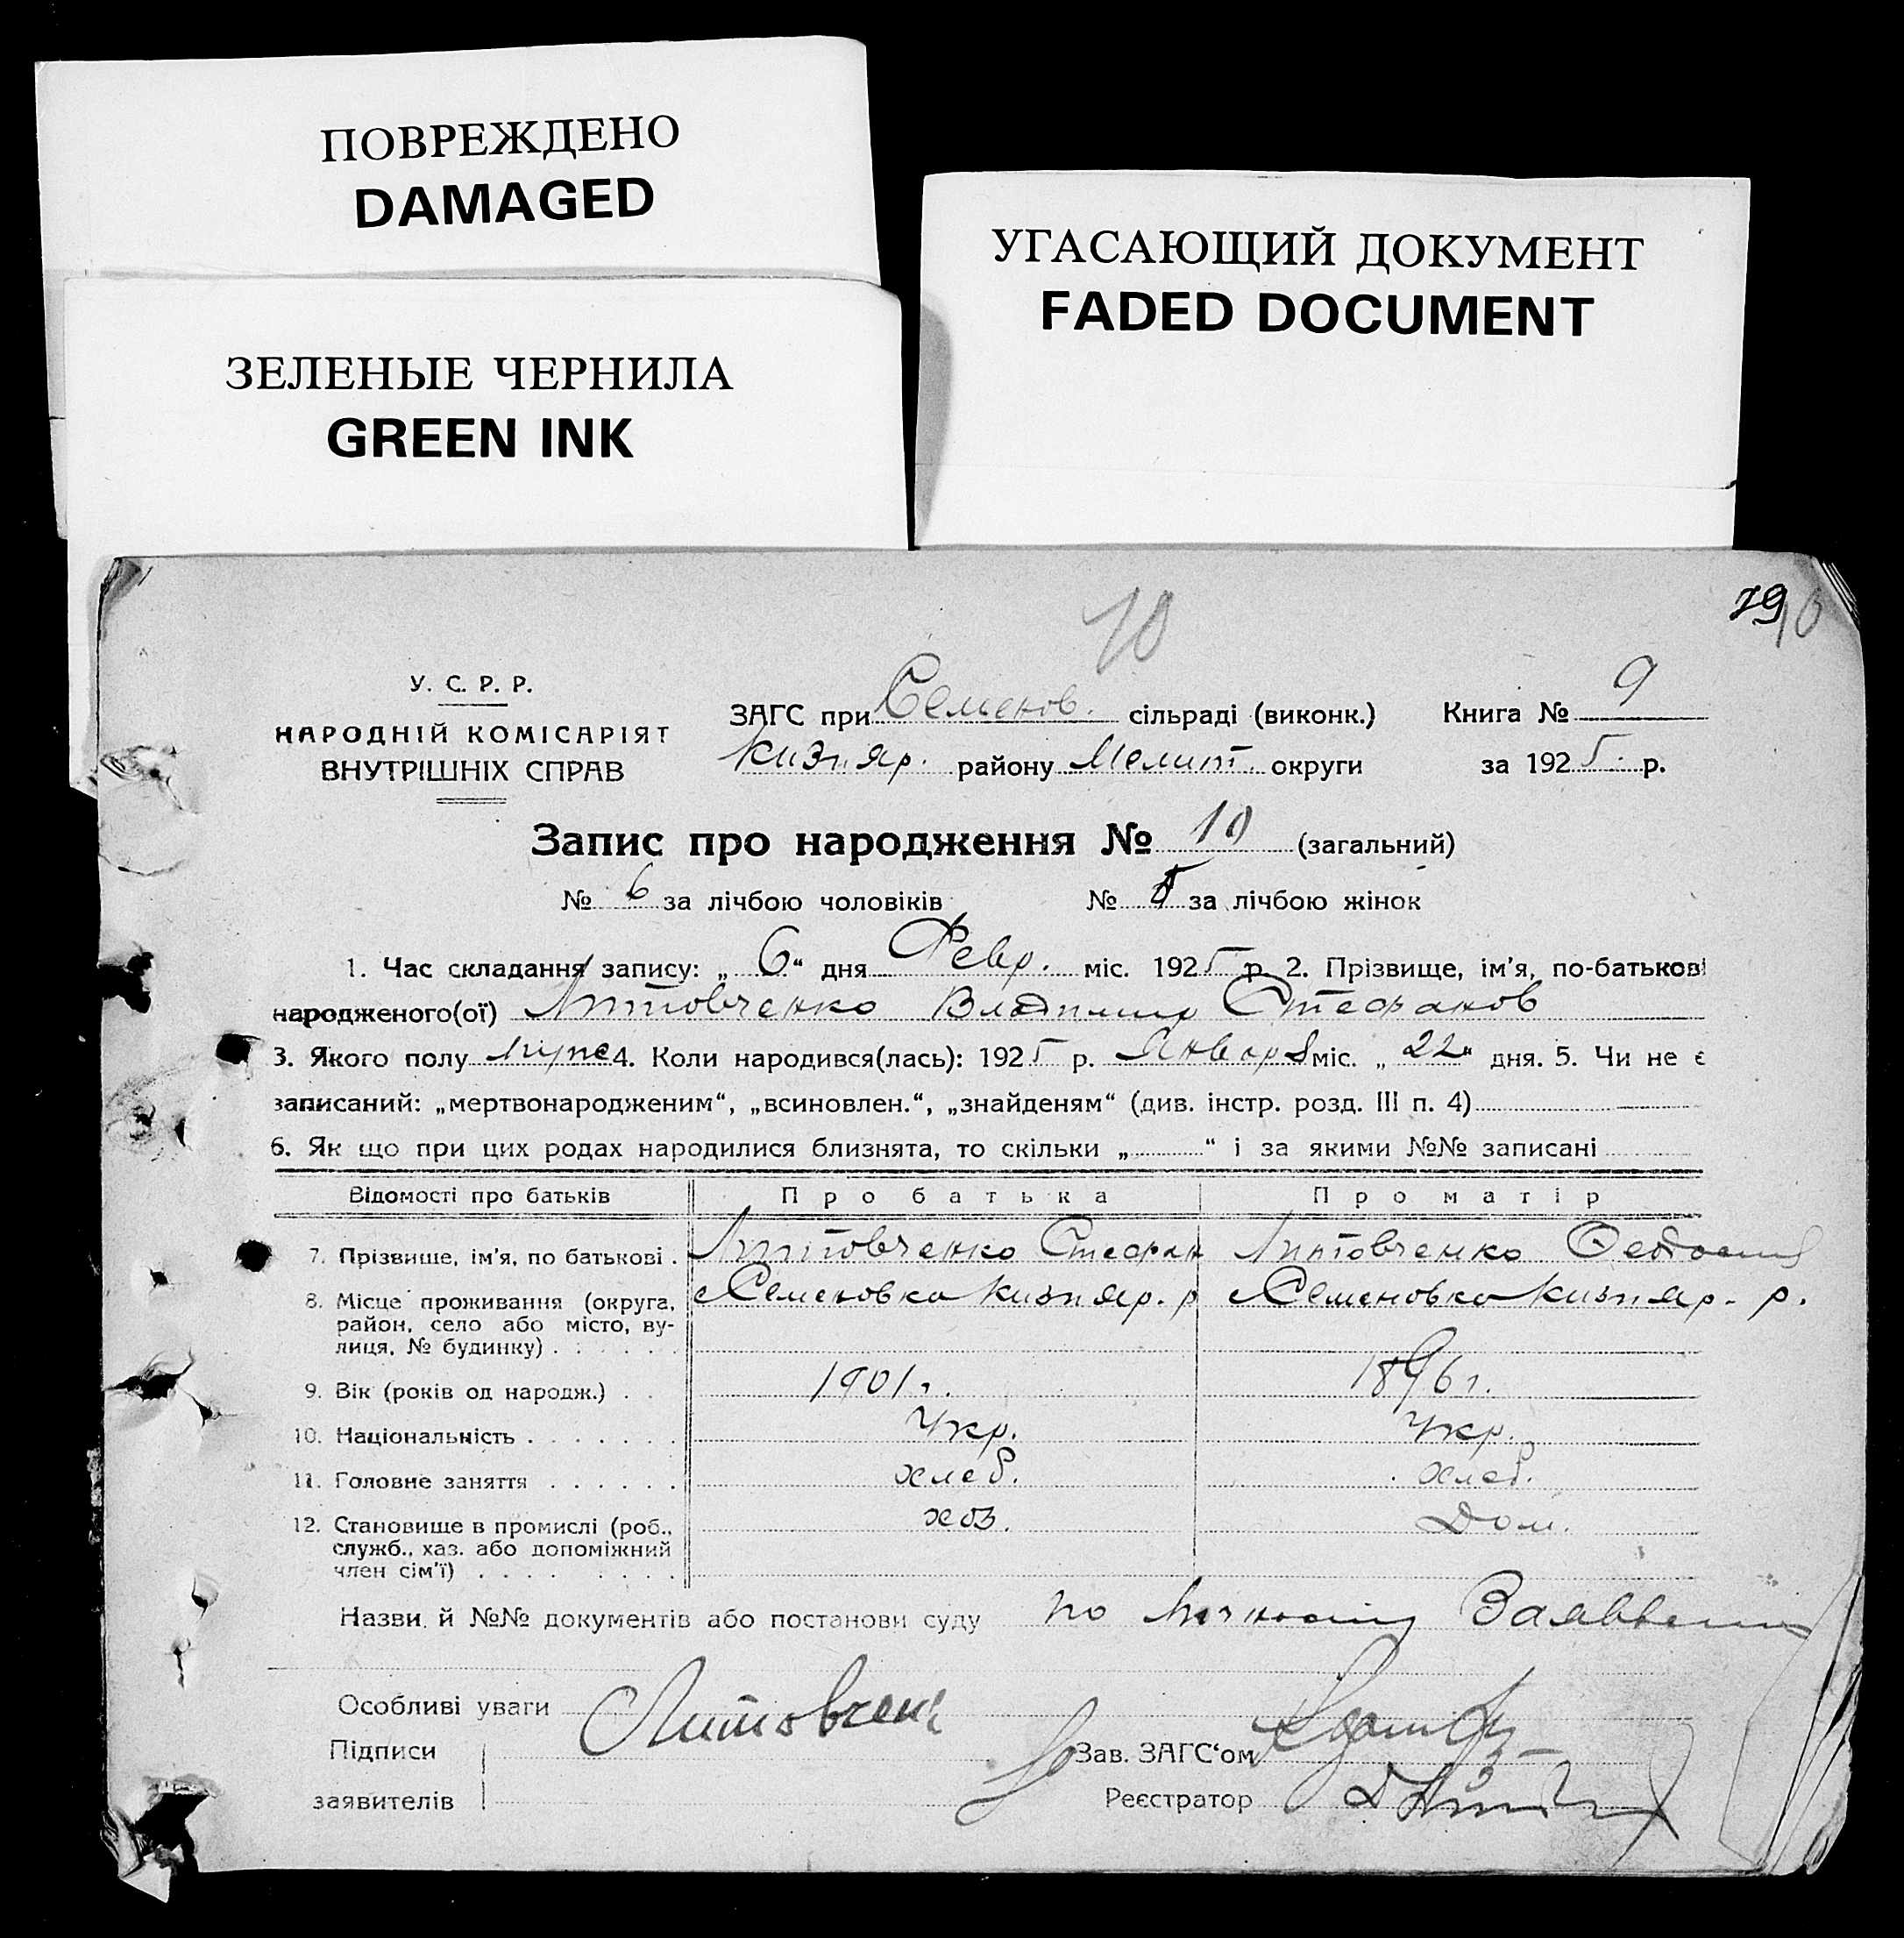 ПОВРЕЖДЕНО
DAMAGED
ЗЕЛЕНЫЕ ЧЕРНИЛА
GREEN INK
УГАСАЮЩИЙ ДОКУМЕНТ
FADED DOCUMENT
10
79
У. С. Р. Р.
НАРОДНІЙ КОМІСАРІЯТ
ВНУТРІШНІХ СПРАВ
ЗАГС при Семенов. сільраді (виконк.) Книга № 9
Кизияр. району Мелит. округи за 1925. р.
Запис про народження № 10 (загальний)
№ 6 за лічбою чоловіків № за лічбою жінок
1. Час складання запису: „ 6 “ дня Февр. міс. 1925 р. 2. Прізвище, ім’я, по-батькові
народженого(ої) Литовченко Владимир Стефанов
3. Якого полу муж 4. Коли народився(лась): 1925 р. Января міс. „ 22 “ дня. 5. Чи не є
записаний: „мертвонародженим“, „всиновлен.“, „знайденям“ (див. інстр. розд. III п. 4)
6. Як що при цих родах народилися близнята, то скільки „ “ і за якими №№ записані
Відомості про батьків Про батька Про матір
7. Прізвище, ім’я, по батькові . Литовченко Стефан Литовченко Федосия
8. Місце проживання (округа, район, село або місто, вулиця, № будинку) . . . . . . с Семеновка Кизияр. р с Семеновка Кизияр. р.
9. Вік (років од народж.) . . 1901 г. 1896 г.
10. Національність . . . . . . . Укр. Укр.
11. Головне заняття . . . . . . хлеб. хлеб.
12. Становище в промислі (роб., служб., хаз. або допоміжний член сім’ї) . . . . . . . . хоз. Дом.
Назви й №№ документів або постанови суду по личному Заявлению
Особливі уваги
Підписи Литовченк Зав. ЗАГС‘ом
заявителів Реєстратор